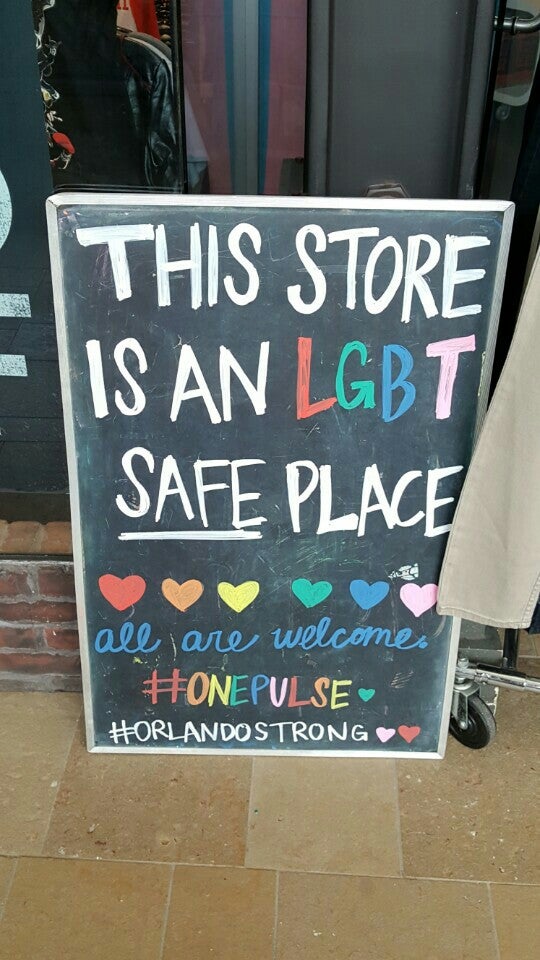 THIS STORE
IS AN LGBT
SAFE PLACE
all are welcome.
#ONEPULSE
#ORLANDOSTRONG